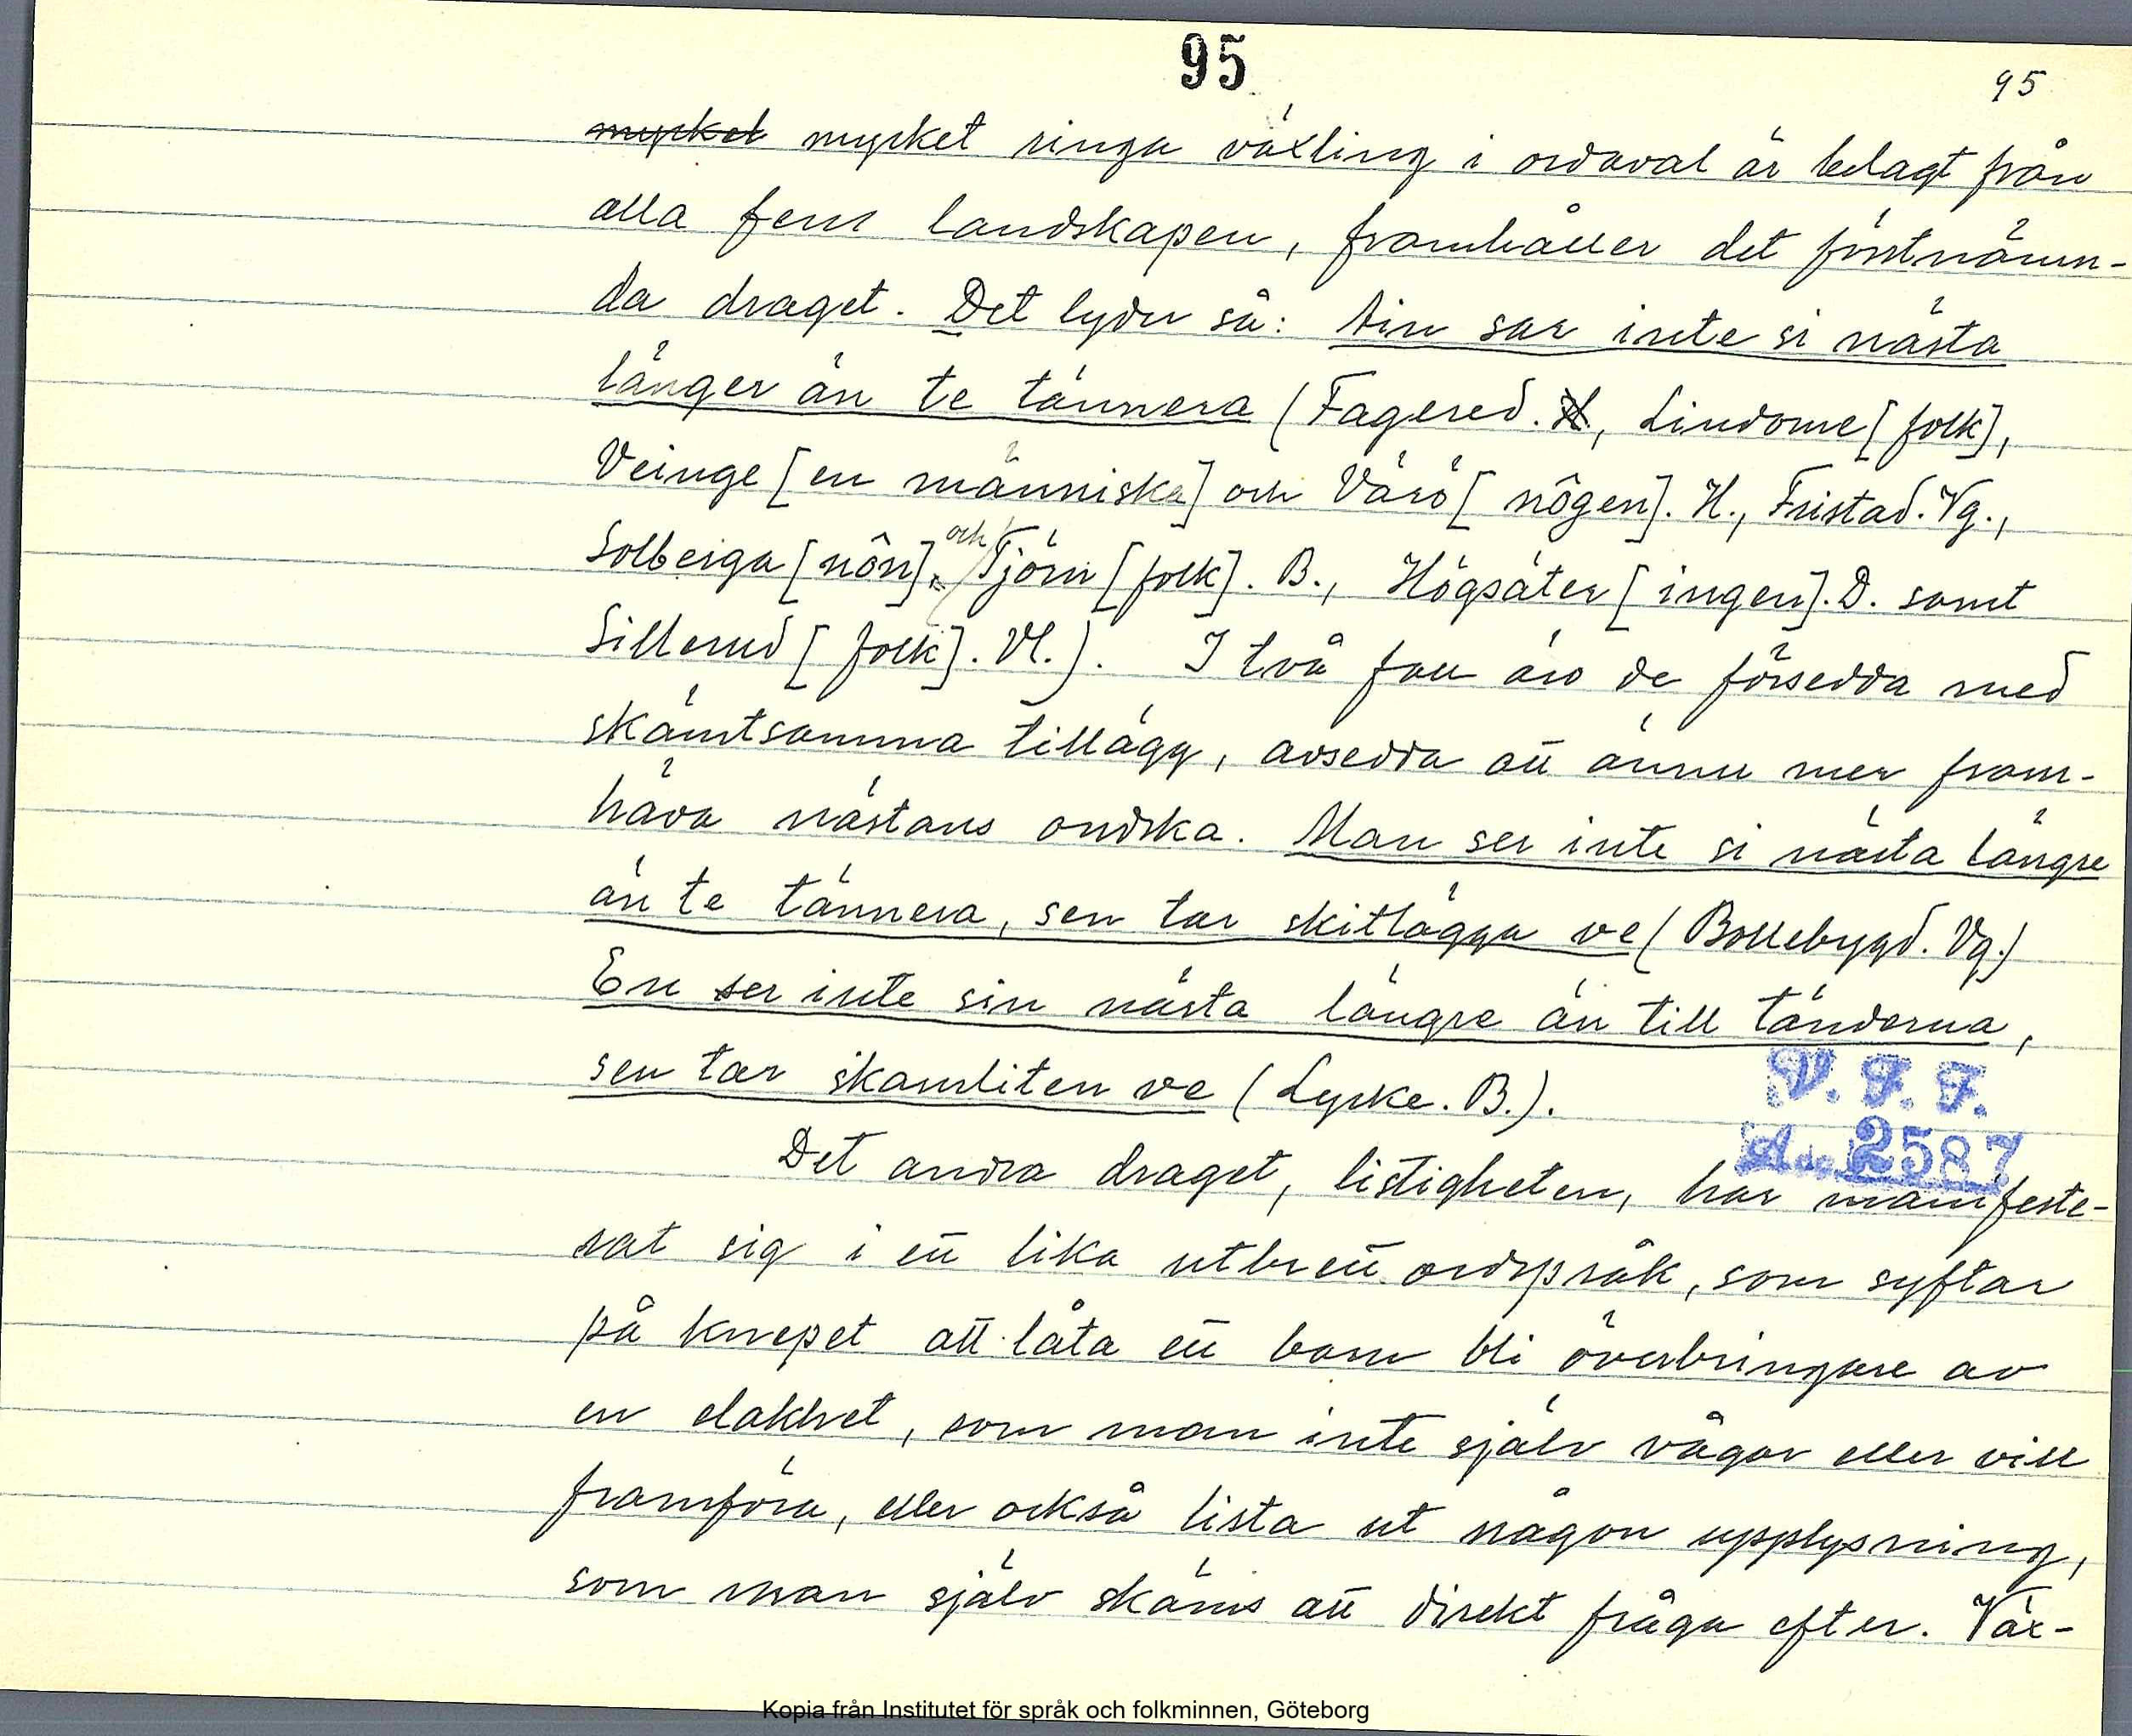 95
95
mycket mycket ringa växling i ordaval är belagt från
alla fem landskapen, framhåller det förstnämn-
da draget. Det lyder så: Ain sar inte si nästa
länger än te tännera (Fagered. H, Lindome [folk],
Veinge [en människa] och Värö [nôgen]. H., Fristad. Vg.,
Solberga [nôn], och Tjörn [folk]. B., Högsäter [ingen]. D. samt
Sillerud [folk]. Vl.). I två fall äro de försedda med
skämtsamma tillägg, avsedda att ännu mer fram-
häva nästans ondska. Man ser inte si nästa längre
än te tännera, sen tar skitlägga ve (Bollebygd. Vg.)
En ser inte sin nästa längre än till tänderna,
sen tar skamliten ve (Lycke. B.).
V. F. F.
Acc. 2587
Det andra draget, listigheten, har manifeste-
rat sig i ett lika utbrett ordspråk, som syftar
på knepet att låta ett barn bli överbringare av
en elakhet, som man inte själv vågar eller vill
framföra, eller också lista ut någon upplysning,
som man själv skäms att direkt fråga efter. Väx-
Kopia från Institutet för språk och folkminnen, Göteborg